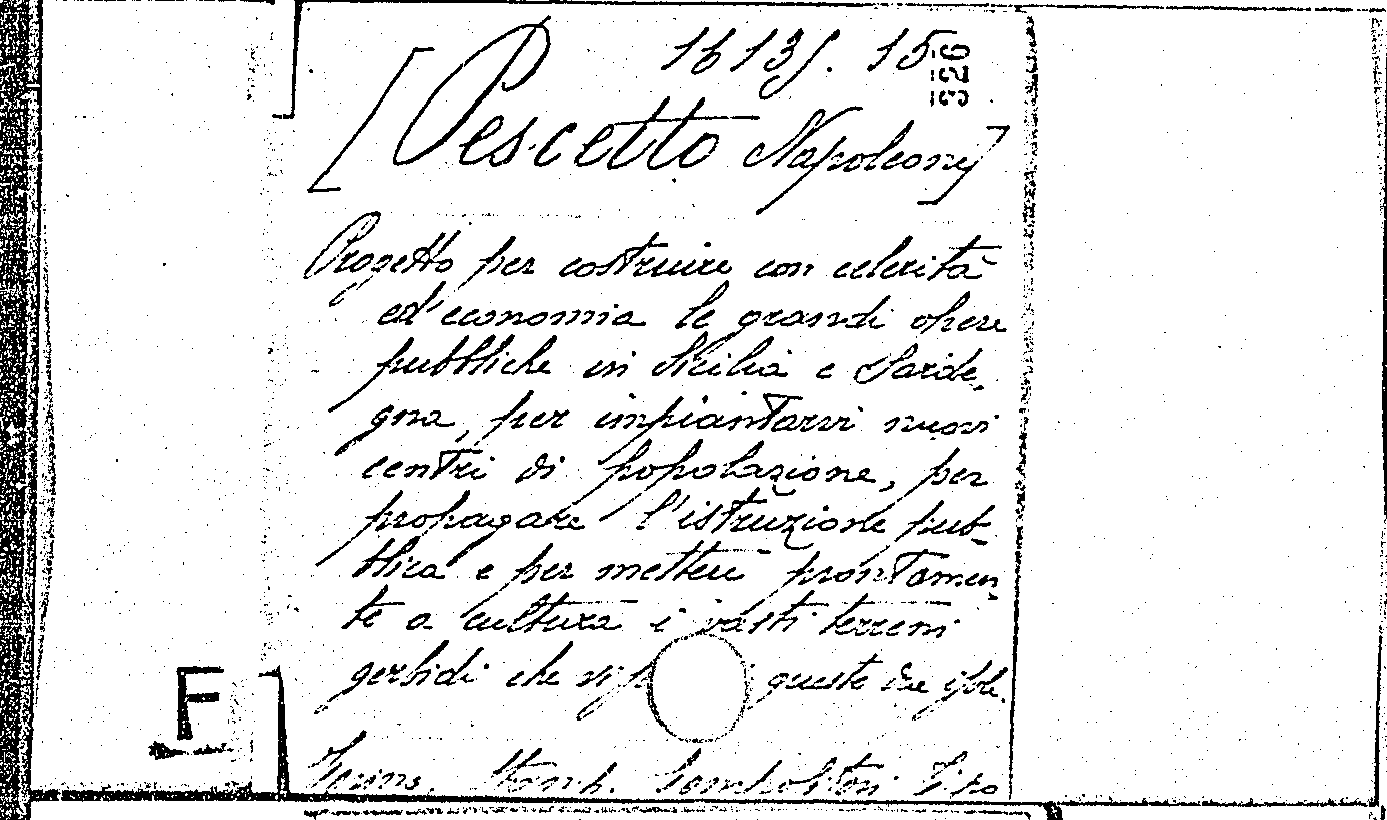 1613J. 15
326
[Pescetto Napoleone]
Progetto per costruire con celerità
ed'economia le grandi opere
pubbliche in Sicilia e Sarde-
gna, per impiantarvi nuovi
centri di popolazione, per
propagare l'istruzione pub-
blica e per mettere prontamen-
te a cultura i vasti terreni
gerbidi che queste due isole.
F
Torino. Stamp. Compositori Tipo